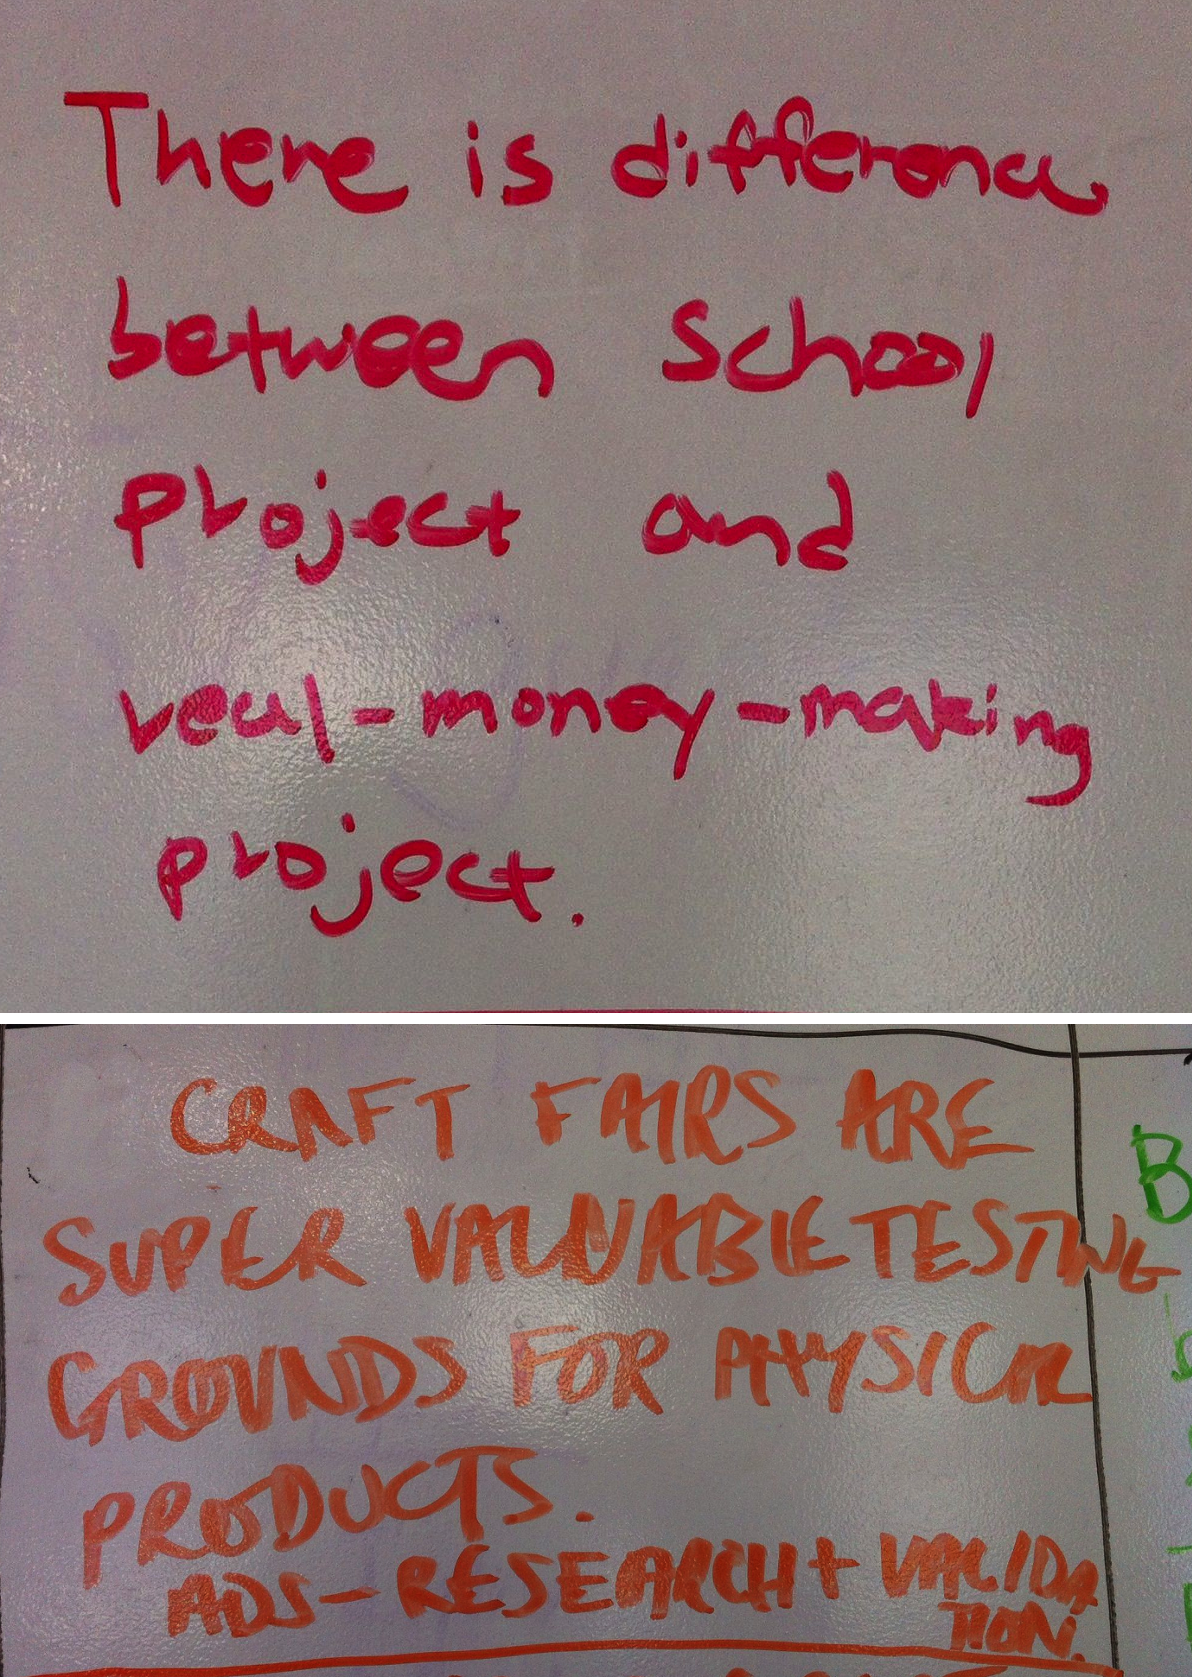 There is difference
between School
project and
real-money-making
project.
CRAFT FAIRS ARE
SUPER VALUABLE TESTING
GROUNDS FOR PHYSICAL
PRODUCTS.
ADS - RESEARCH + VALIDA
TION.
B